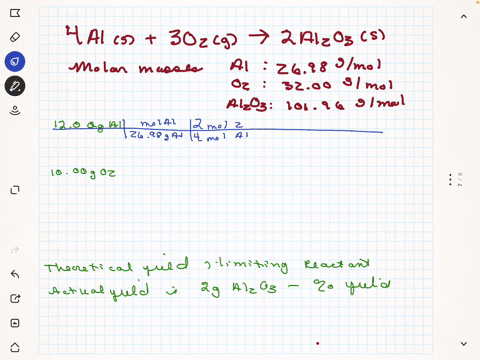 4Al(s) + 3O2(g) → 2Al2O3(s)
Molar masses Al : 26.98 g/mol
O2 : 32.00 g/mol
Al2O3: 101.96 g/mol
12.00g Al | mol Al | 2 mol 2
26.98g Al | 4 mol Al
10.00g O2
Theoretical yield limiting Reactant
Actual yield is 2g Al2O3 - % yield
7 / 8